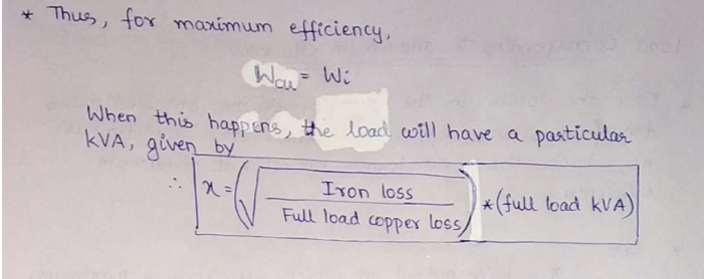 * Thus, for maximum efficiency,
Wcu = Wi
When this happens, the load will have a particular
kVA, given by
∴ x = (√(Iron loss / Full load copper loss)) * (full load kVA)